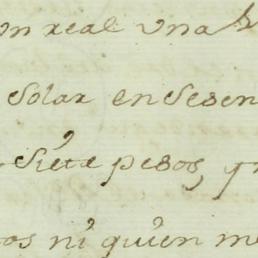 on real una
solar en sesen
siete pesos, y
os ni quien me